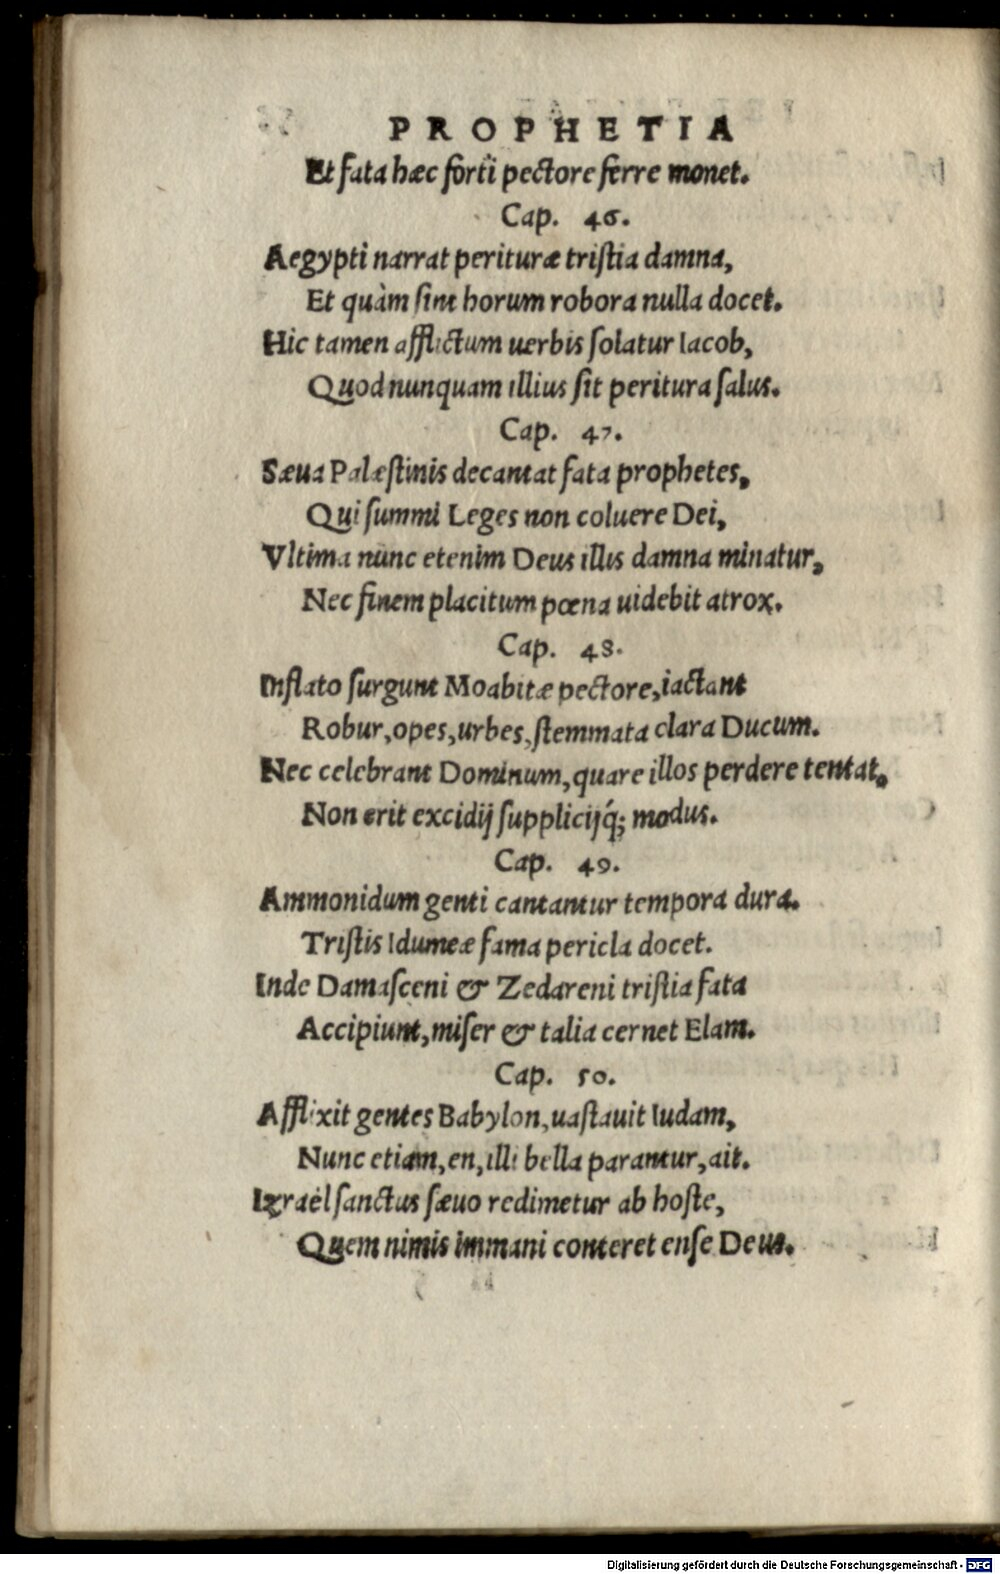 PROPHETIA
Et fata hæc forti pectore ferre monet.
Cap. 46.
Aegypti narrat perituræ tristia damna,
Et quàm sint horum robora nulla docet.
Hic tamen afflictum uerbis solatur Iacob,
Quod nunquam illius sit peritura salus.
Cap. 47.
Sæua Palæstinis decantat fata prophetes,
Qui summi Leges non coluere Dei,
Vltima nunc etenim Deus illis damna minatur,
Nec finem placitum pœna uidebit atrox.
Cap. 48.
Inflato surgunt Moabitæ pectore, iactant
Robur, opes, urbes, stemmata clara Ducum.
Nec celebrant Dominum, quare illos perdere tentat,
Non erit excidij supplicijq́; modus.
Cap. 49.
Ammonidum genti cantantur tempora dura.
Tristis Idumeæ fama pericla docet.
Inde Damasceni & Zedareni tristia fata
Accipiunt, miser & talia cernet Elam.
Cap. 50.
Afflixit gentes Babylon, uastauit Iudam,
Nunc etiam, en, illi bella parantur, ait.
Izraël sanctus sæuo redimetur ab hoste,
Quem nimis immani conteret ense Deus.
Digitalisierung gefördert durch die Deutsche Forschungsgemeinschaft - DFG